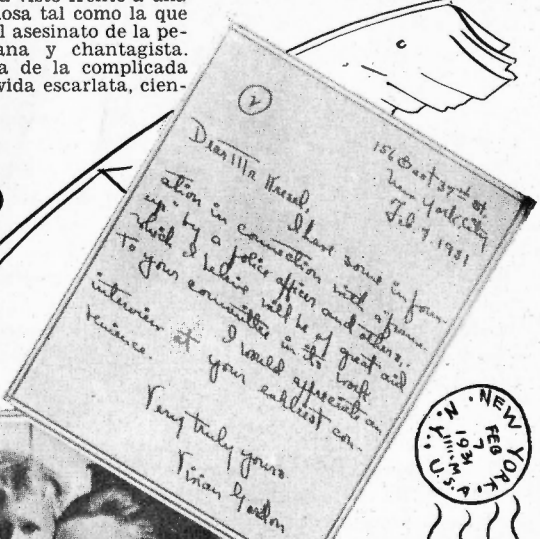 visto frente a una
osa tal como la que
l asesinato de la pe-
ana y chantagista.
a de la complicada
vida escarlata, cien-
2
156 East 37th St.
New York City
Feb. 7, 1931
Dear Mr Kresel,
I have some inform-
ation in connection with a "frame
up" by a police officer and others,
which I believe will be of great aid
to your committee in its work.
I would appreciate an
interview at your earliest con-
venience.
Very truly yours
Vivian Gordon
NEW YORK, N.Y. U.S.A.
FEB
7
11 M.
1931